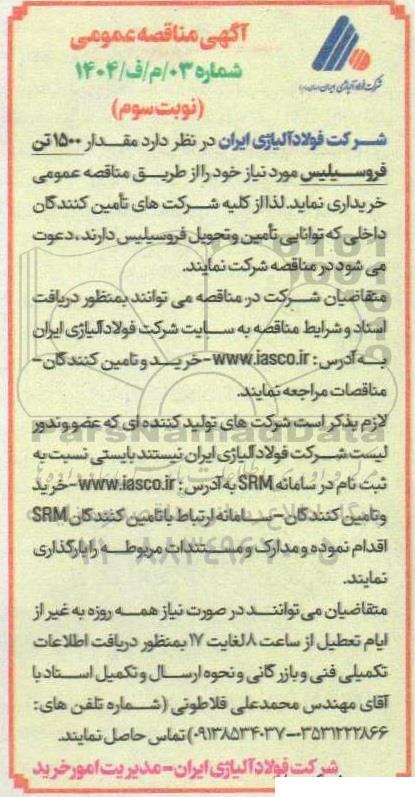 آگهی مناقصه عمومی
شماره ۰۳/م/ف/۱۴۰۴
(نوبت سوم)
شرکت فولاد آلیاژی ایران (سهامی عام)
شرکت فولاد آلیاژی ایران در نظر دارد مقدار ۱۵۰۰ تن
فروسیلیس مورد نیاز خود را از طریق مناقصه عمومی
خریداری نماید. لذا از کلیه شرکت های تأمین کنندگان
داخلی که توانایی تأمین و تحویل فروسیلیس دارند، دعوت
می شود در مناقصه شرکت نمایند.
متقاضیان شرکت در مناقصه می توانند بمنظور دریافت
اسناد و شرایط مناقصه به سایت شرکت فولاد آلیاژی ایران
به آدرس: www.iasco.ir -خرید و تامین کنندگان-
مناقصات مراجعه نمایند.
لازم بذکر است شرکت های تولید کننده ای که عضو وندور
لیست شرکت فولاد آلیاژی ایران نیستند بایستی نسبت به
ثبت نام در سامانه SRM به آدرس: www.iasco.ir -خرید
و تامین کنندگان- سامانه ارتباط با تامین کنندگان SRM
اقدام نموده و مدارک و مستندات مربوطه را بارگذاری
نمایند.
متقاضیان می توانند در صورت نیاز همه روزه به غیر از
ایام تعطیل از ساعت ۸ لغایت ۱۷ بمنظور دریافت اطلاعات
تکمیلی فنی و بازرگانی و نحوه ارسال و تکمیل اسناد با
آقای مهندس محمدعلی فلاطونی (شماره تلفن های:
۰۳۵۳۱۲۲۲۸۶۶-۰۹۱۳۸۵۳۴۰۳۷) تماس حاصل نمایند.
شرکت فولاد آلیاژی ایران - مدیریت امور خرید
ParsNamadData